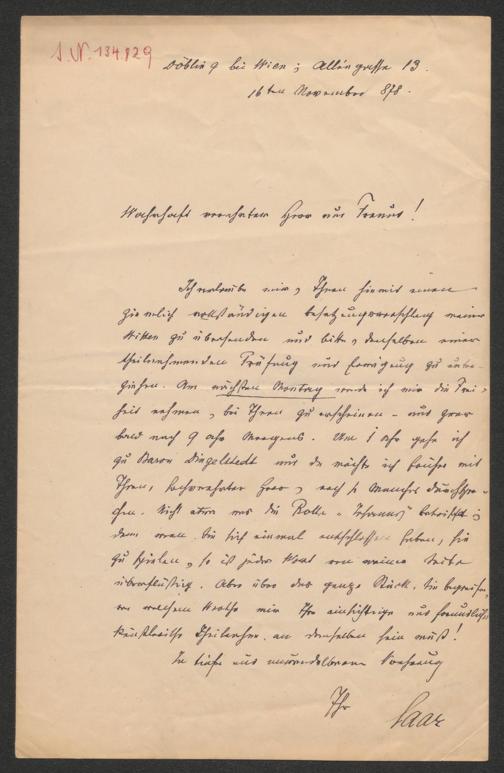 I. N. 134.829
Döbling bei Wien; Alleegasse 13.
16ten November 878.
Wahrhaft verehrter Herr und Freund!
Ich erlaube mir, Ihnen hiermit einen
ziemlich vollständigen Besetzungsvorschlag meiner
Witten zu übersenden und bitte, denselben einer
theilnehmenden Prüfung und Erwägung zu unter-
ziehen. Am nächsten Montag werde ich mir die Frei-
heit nehmen, bei Ihnen zu erscheinen – und zwar
bald nach 9 Uhr Morgens. Um 1 Uhr gehe ich
zu Baron Dingelstedt und da möchte ich früher mit
Ihnen, hochverehrter Herr, noch so Manches durchspre-
chen. Nicht etwa was die Rolle "Johannes" betrifft;
denn wenn Sie sich einmal entschlossen haben, sie
zu spielen, so ist jedes Wort von meiner Seite
überflüssig. Aber über das ganze Stück. Sie begreifen,
von welchem Werthe mir Ihre einsichtige und freundliche
künstlerische Theilnahme an demselben sein muß!
In tiefer und unwandelbarer Verehrung
Ihr
Saar